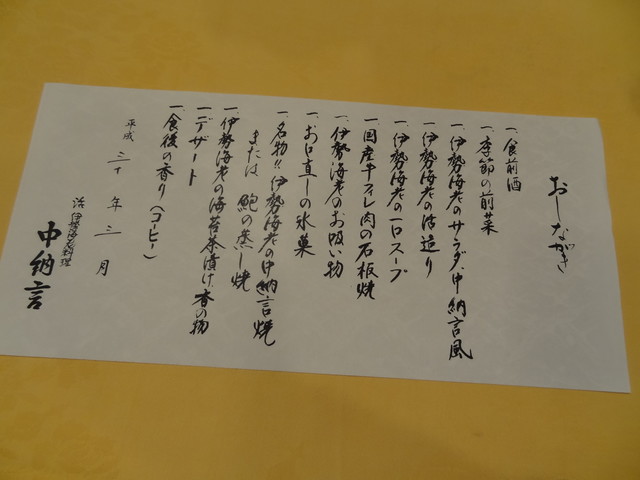 おしながき
一、食前酒
一、季節の前菜
一、伊勢海老のサラダ、中納言風
一、伊勢海老の活造り
一、伊勢海老の一口スープ
一、国産牛フィレ肉の石板焼
一、伊勢海老のお吸い物
一、お口直しの氷菓
一、名物!!伊勢海老の中納言焼
または 鮑の蒸し焼
一、伊勢海老の海苔茶漬け、香の物
一、デザート
一、食後の香り(コーヒー)
平成 三十 年 三 月
浜 伊勢海老料理
中納言